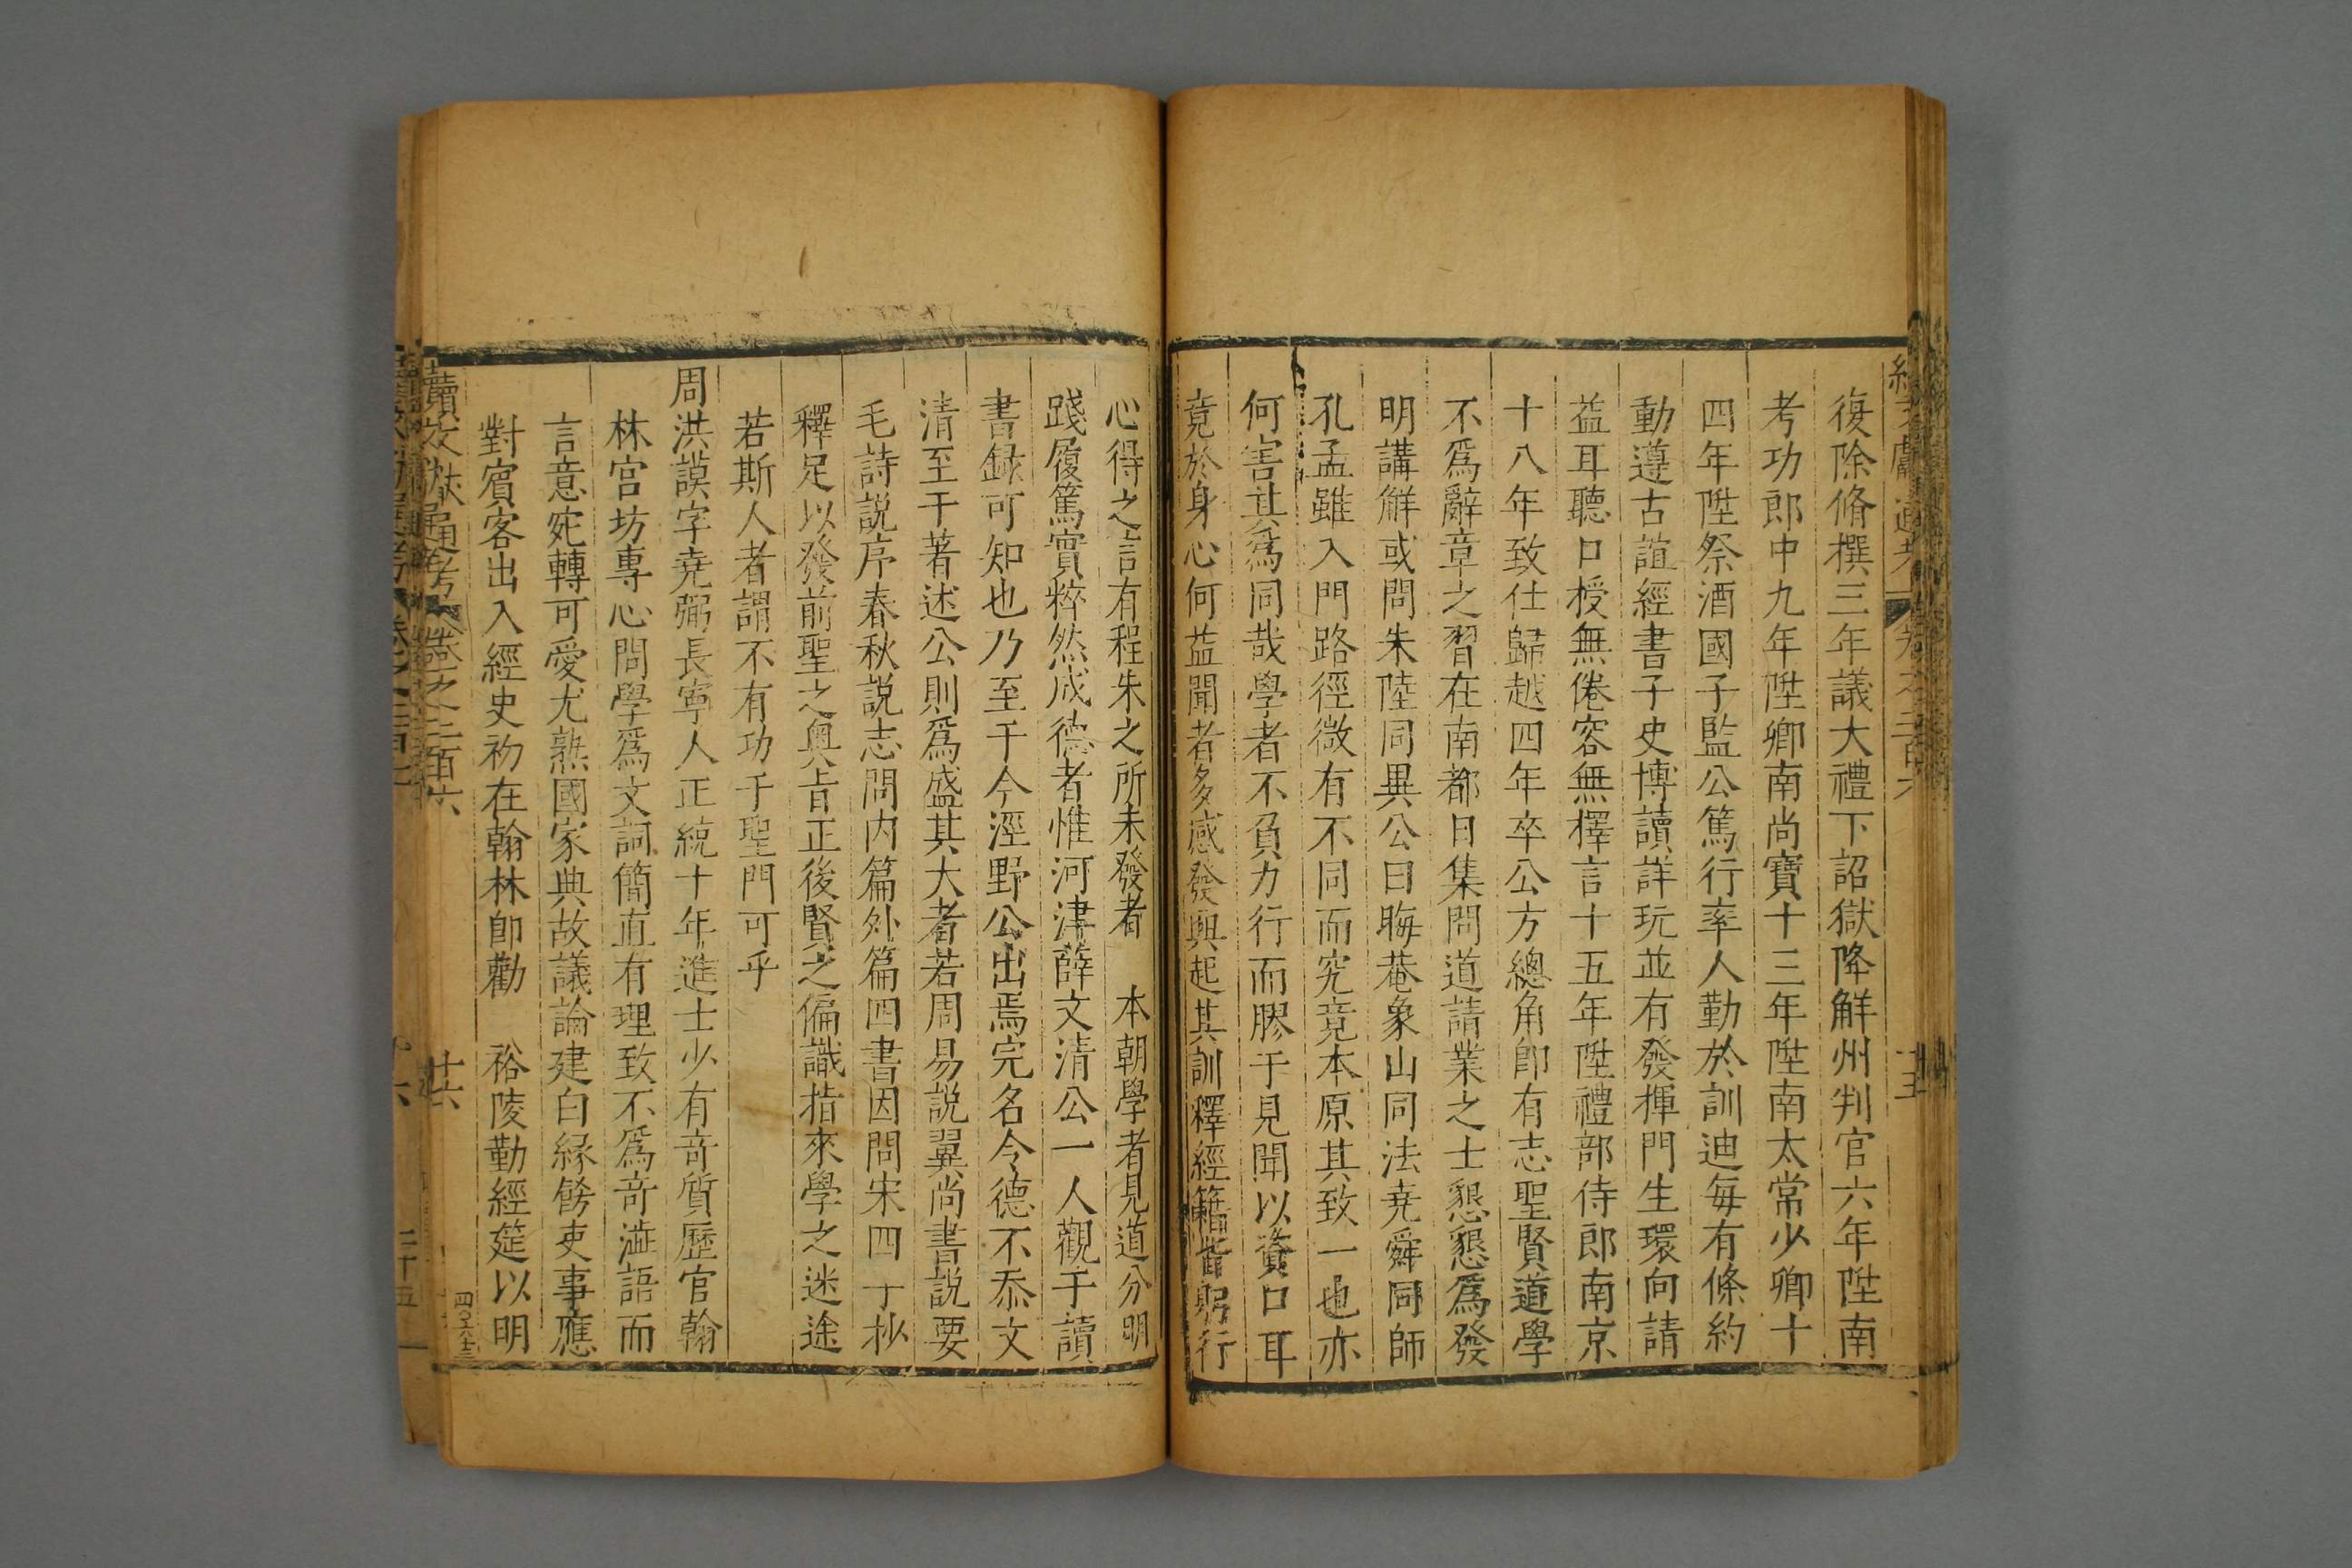 復除脩撰三年議大禮下詔獄降解州判官六年陞南
考功郎中九年陞卿南尚寶十三年陞南太常少卿十
四年陞祭酒國子監公篤行率人勤於訓迪每有條約
動遵古誼經書子史博讀詳玩並有發揮門生環向請
益耳聽口授無倦容無擇言十五年陞禮部侍郎南京
十八年致仕歸越四年卒公方總角卽有志聖賢道學
不爲辭章之習在南都日集問道請業之士懇懇爲發
明講解或問朱陸同異公曰晦菴象山同法堯舜同師
孔孟雖入門路徑微有不同而究竟本原其致一也亦
何害其爲同哉學者不負力行而膠于見聞以資口耳
竟於身心何益聞者多感發興起其訓釋經籍皆躬行
心得之言有程朱之所未發者　本朝學者見道分明
踐履篤實粹然成德者惟河津薛文清公一人觀于讀
書録可知也乃至于今涇野公出焉完名令德不忝文
清至于著述公則爲盛其大者若周易説翼尚書説要
毛詩説序春秋説志問内篇外篇四書因問宋四子抄
釋足以發前聖之奥旨正後賢之偏識指來學之迷途
若斯人者謂不有功于聖門可乎
周洪謨字堯弼長寧人正統十年進士少有竒質歷官翰
林宫坊專心問學爲文詞簡直有理致不爲竒澁語而
言意宛轉可愛尤熟國家典故議論建白縁餙吏事應
對賓客出入經史初在翰林卽勸　裕陵勤經筵以明
續文獻通考　卷之二百六　十六